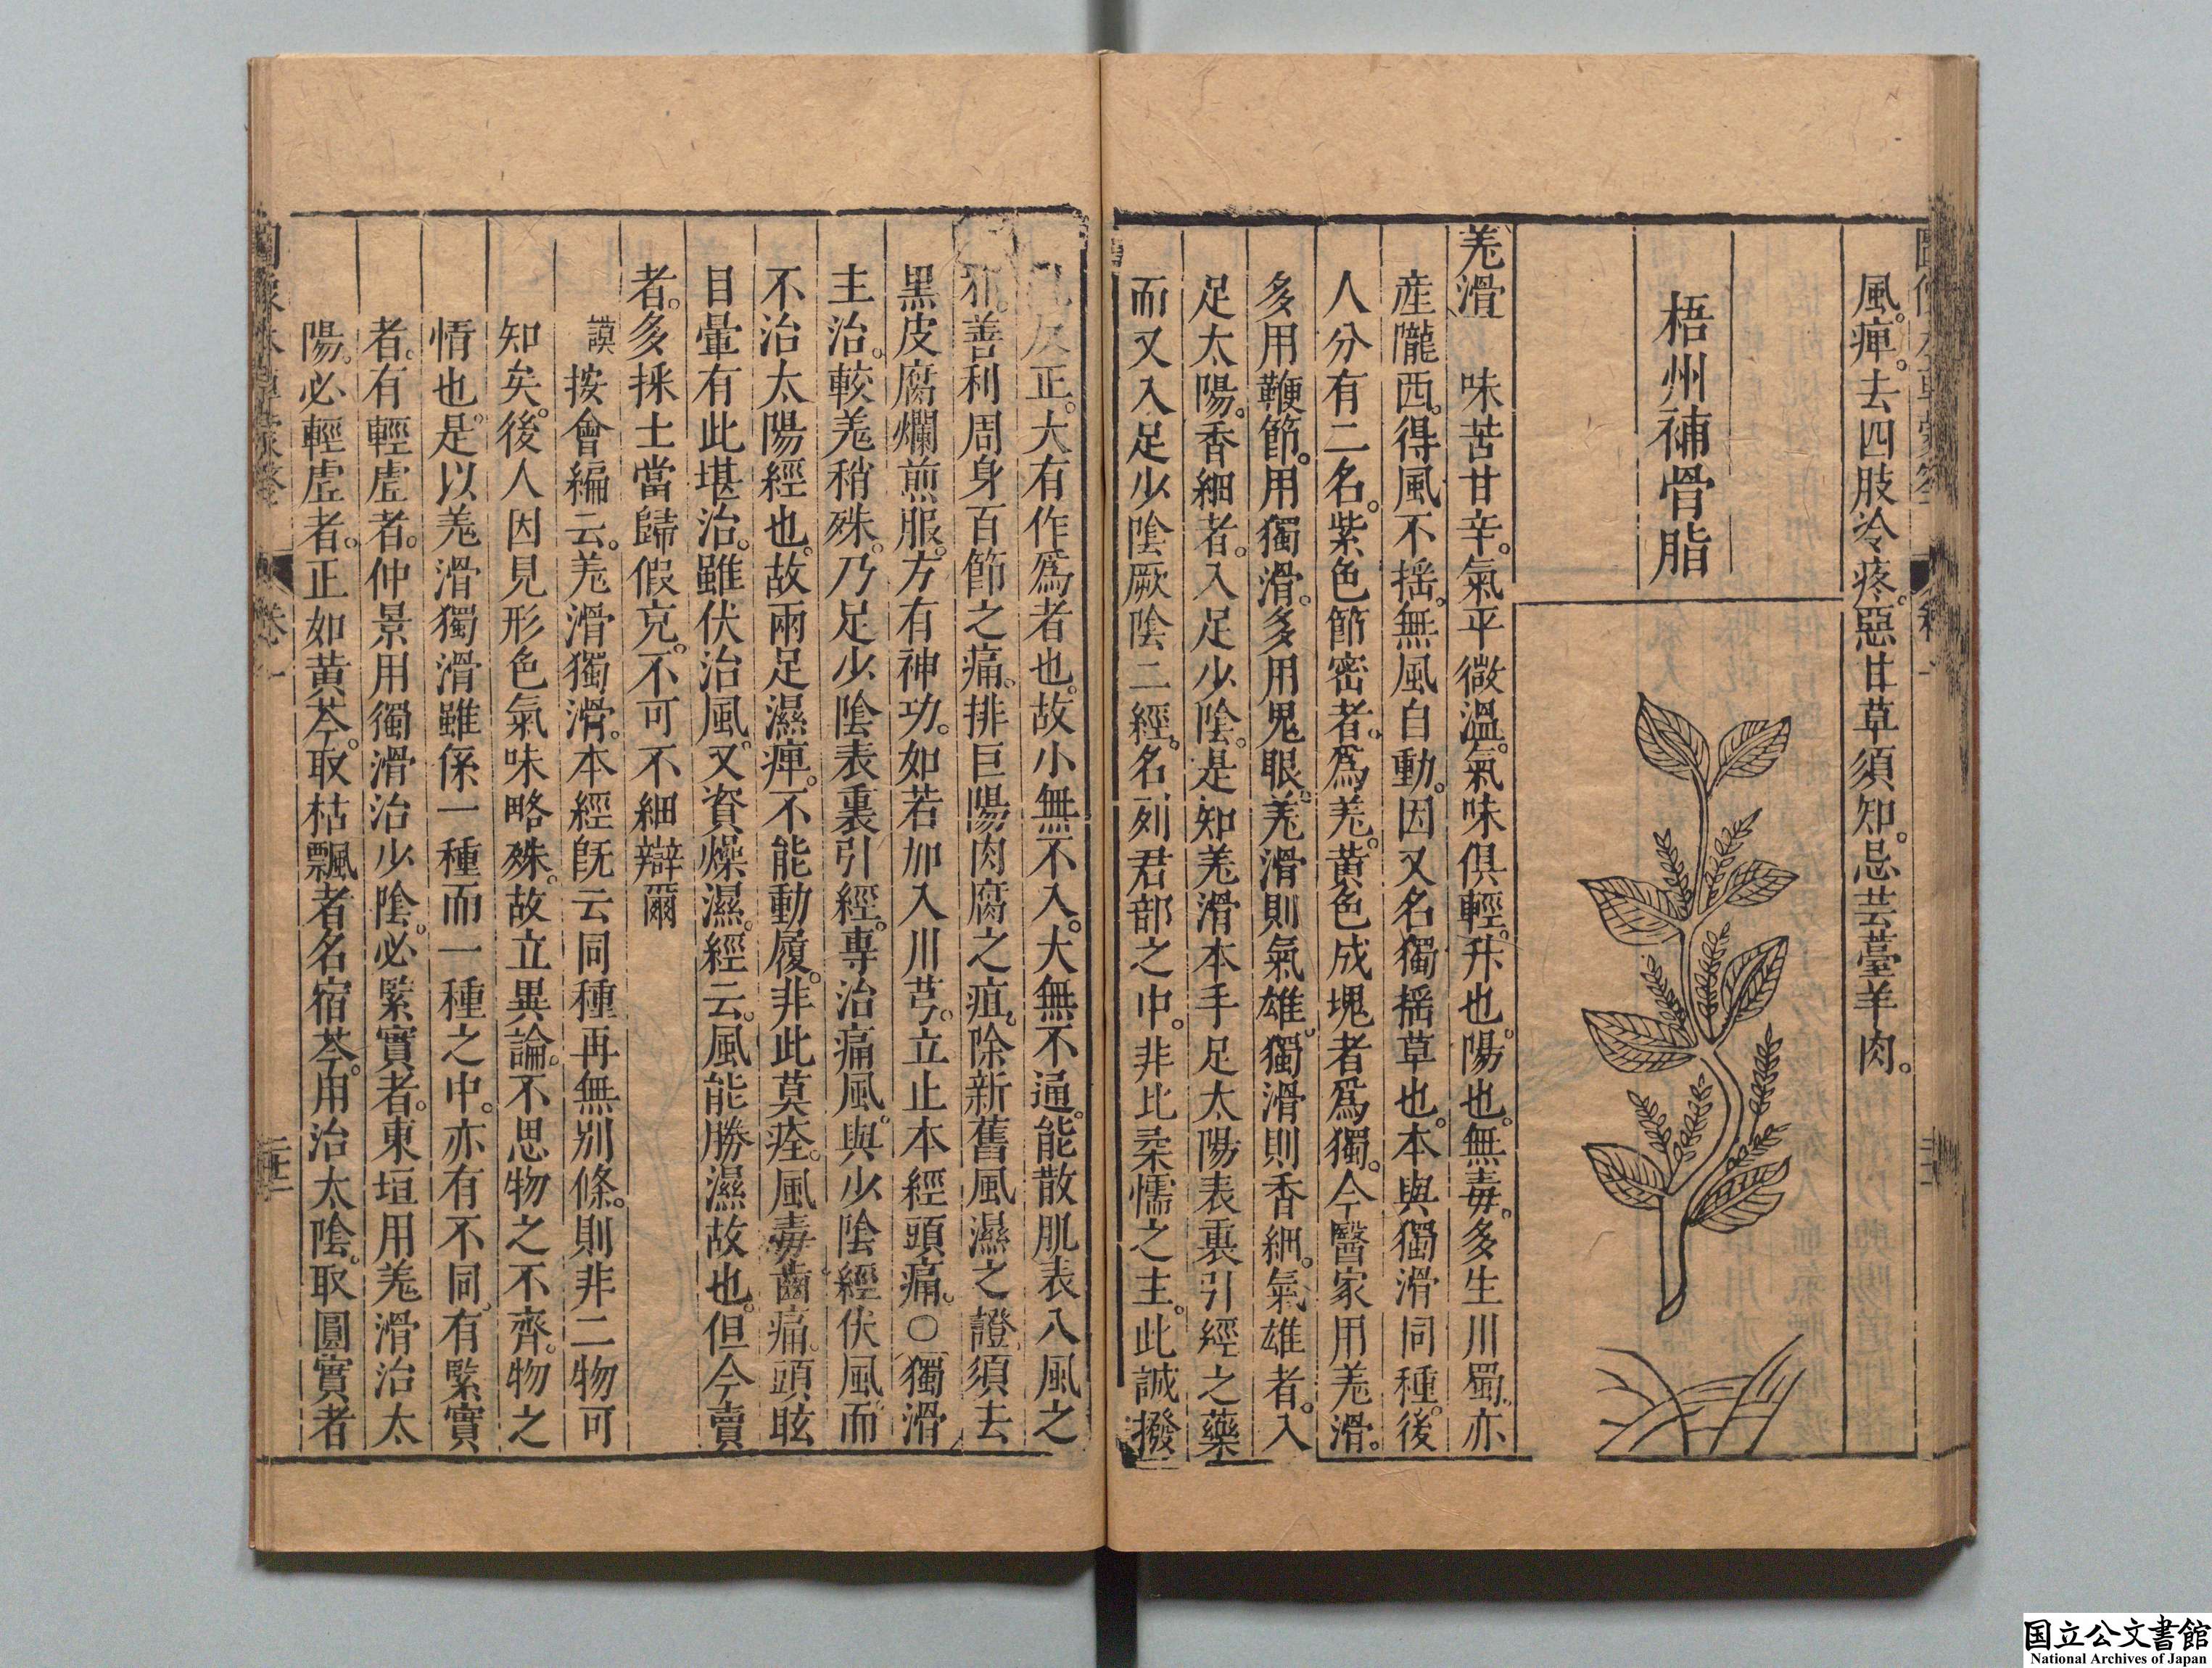 風痺。去四肢冷疼。惡甘草須知。忌芸薹羊肉。
梧州補骨脂
羗滑　味苦甘辛。氣平微溫。氣味俱輕。升也。陽也。無毒。多生川蜀。亦
産隴西。得風不揺。無風自動。因又名獨揺草也。本與獨滑同種。後
人分有二名。紫色節密者。爲羗。黄色成塊者爲獨。今醫家用羗滑。
多用鞭節。用獨滑。多用鬼眼。羗滑則氣雄。獨滑則香細。氣雄者。入
足太陽。香細者。入足少陰。是知羗滑本手足太陽表裏引經之藥
而又入足少陰厥陰二經。名列君部之中。非比柔懦之主。此誠撥
亂反正。大有作爲者也。故小無不入。大無不通。能散肌表八風之
邪。善利周身百節之痛。排巨陽肉腐之疽。除新舊風濕之證。須去
黑皮腐爛煎服。方有神功。如若加入川芎。立止本經頭痛。○獨滑
主治。較羗稍殊。乃足少陰表裏引經。專治痛風。與少陰經伏風。而
不治太陽經也。故兩足濕痺。不能動履。非此莫痊。風毒齒痛。頭眩
目暈有此堪治。雖伏治風。又資燥濕。經云。風能勝濕故也。但今賣
者。多採土當歸假充。不可不細辯爾
謨按會編云。羗滑獨滑。本經旣云同種再無別條。則非二物可
知矣。後人因見形色氣味略殊。故立異論。不思物之不齊。物之
情也。是以羗滑獨滑雖係一種而一種之中。亦有不同。有緊實
者。有輕虛者。仲景用獨滑治少陰。必緊實者。東垣用羗滑治太
陽。必輕虛者。正如黄芩。取枯飄者名宿芩。用治太陰。取圓實者
卷一
国立公文書館
National Archives of Japan